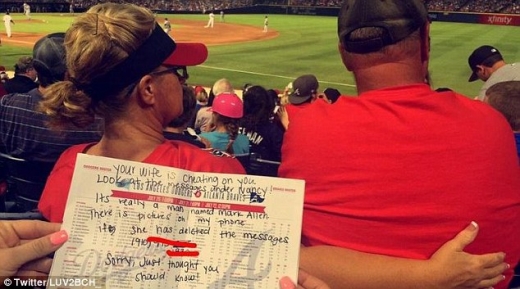 xfinity
Your Wife is cheating on you
Look at the Messages under Nancy!
LOS ANGELES DODGERS @ ATLANTA BRAVES
Its really a man named Mark Allen
There is pictures on my phone
if she has deleted the messages
Sorry, Just thought you
should know!
© Twitter/LUV2BCH